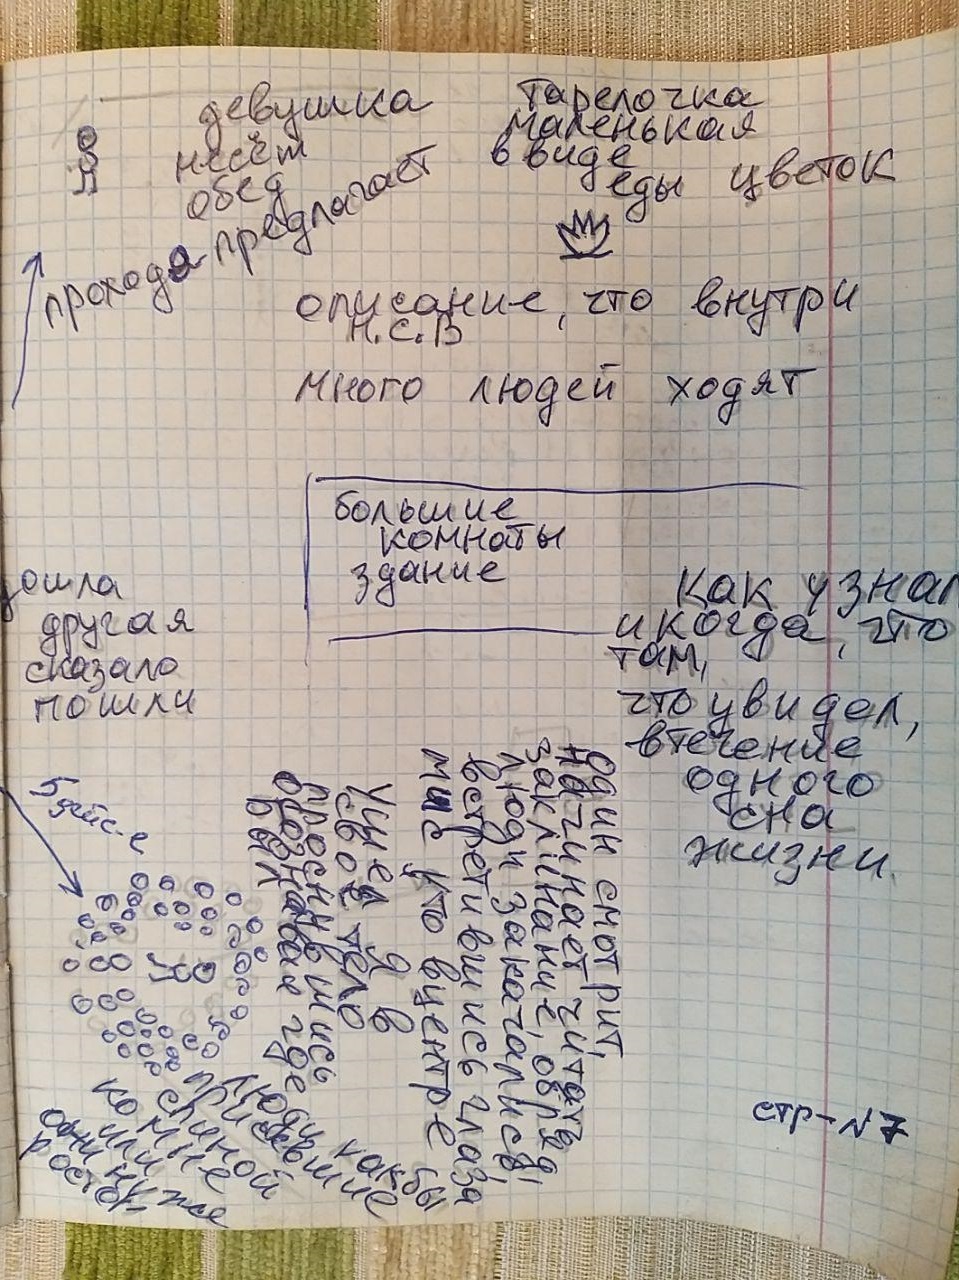 девушка
несёт
обед
проходя предлагает
тарелочка
маленькая
в виде
еды цветок
описание, что внутри
н.с.в
много людей ходят
большие
комнаты
здание
ошла
другая
сказало
пошли
как узнал
и когда, что
там,
что увидел,
втечение
одного
сна
жизни.
один смотрит,
начинает читать
заклинание, обряд,
люди закачались,
встретившись глаза
мне кто в центре
я в
своё тело
проснувшись
где
был
люди как бы
присевшие
спиной
ко мне
или
они ниже
ростом
стр-N7